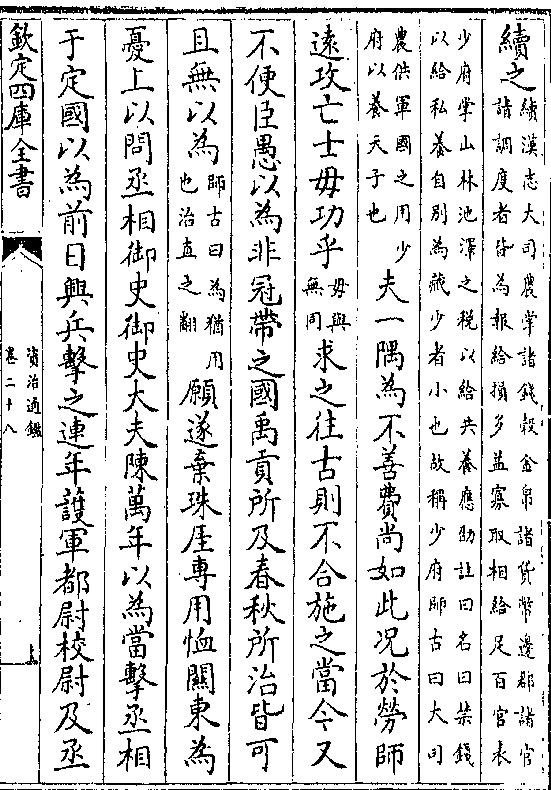 續之續漢志大司農掌諸錢穀金帛諸貨幣邊郡諸官
請調度者皆為報給損多益寡取相給足百官表
少府掌山林池澤之稅以給共養應劭註曰名曰禁錢
以給私養自別為藏少者小也故稱少府師古曰大司
農供軍國之用少
府以養天子也
夫一隅為不善費尚如此况於勞師
遠攻亡士毋功乎毋與無同求之往古則不合施之當今又
不便臣愚以為非冠帶之國禹貢所及春秋所治皆可
且無以為師古曰為猶用也治直之翻願遂棄珠厓專用恤關東為
憂上以問丞相御史御史大夫陳萬年以為當擊丞相
于定國以為前日興兵擊之連年護軍都尉校尉及丞
欽定四庫全書
資治通鑑
卷二十八